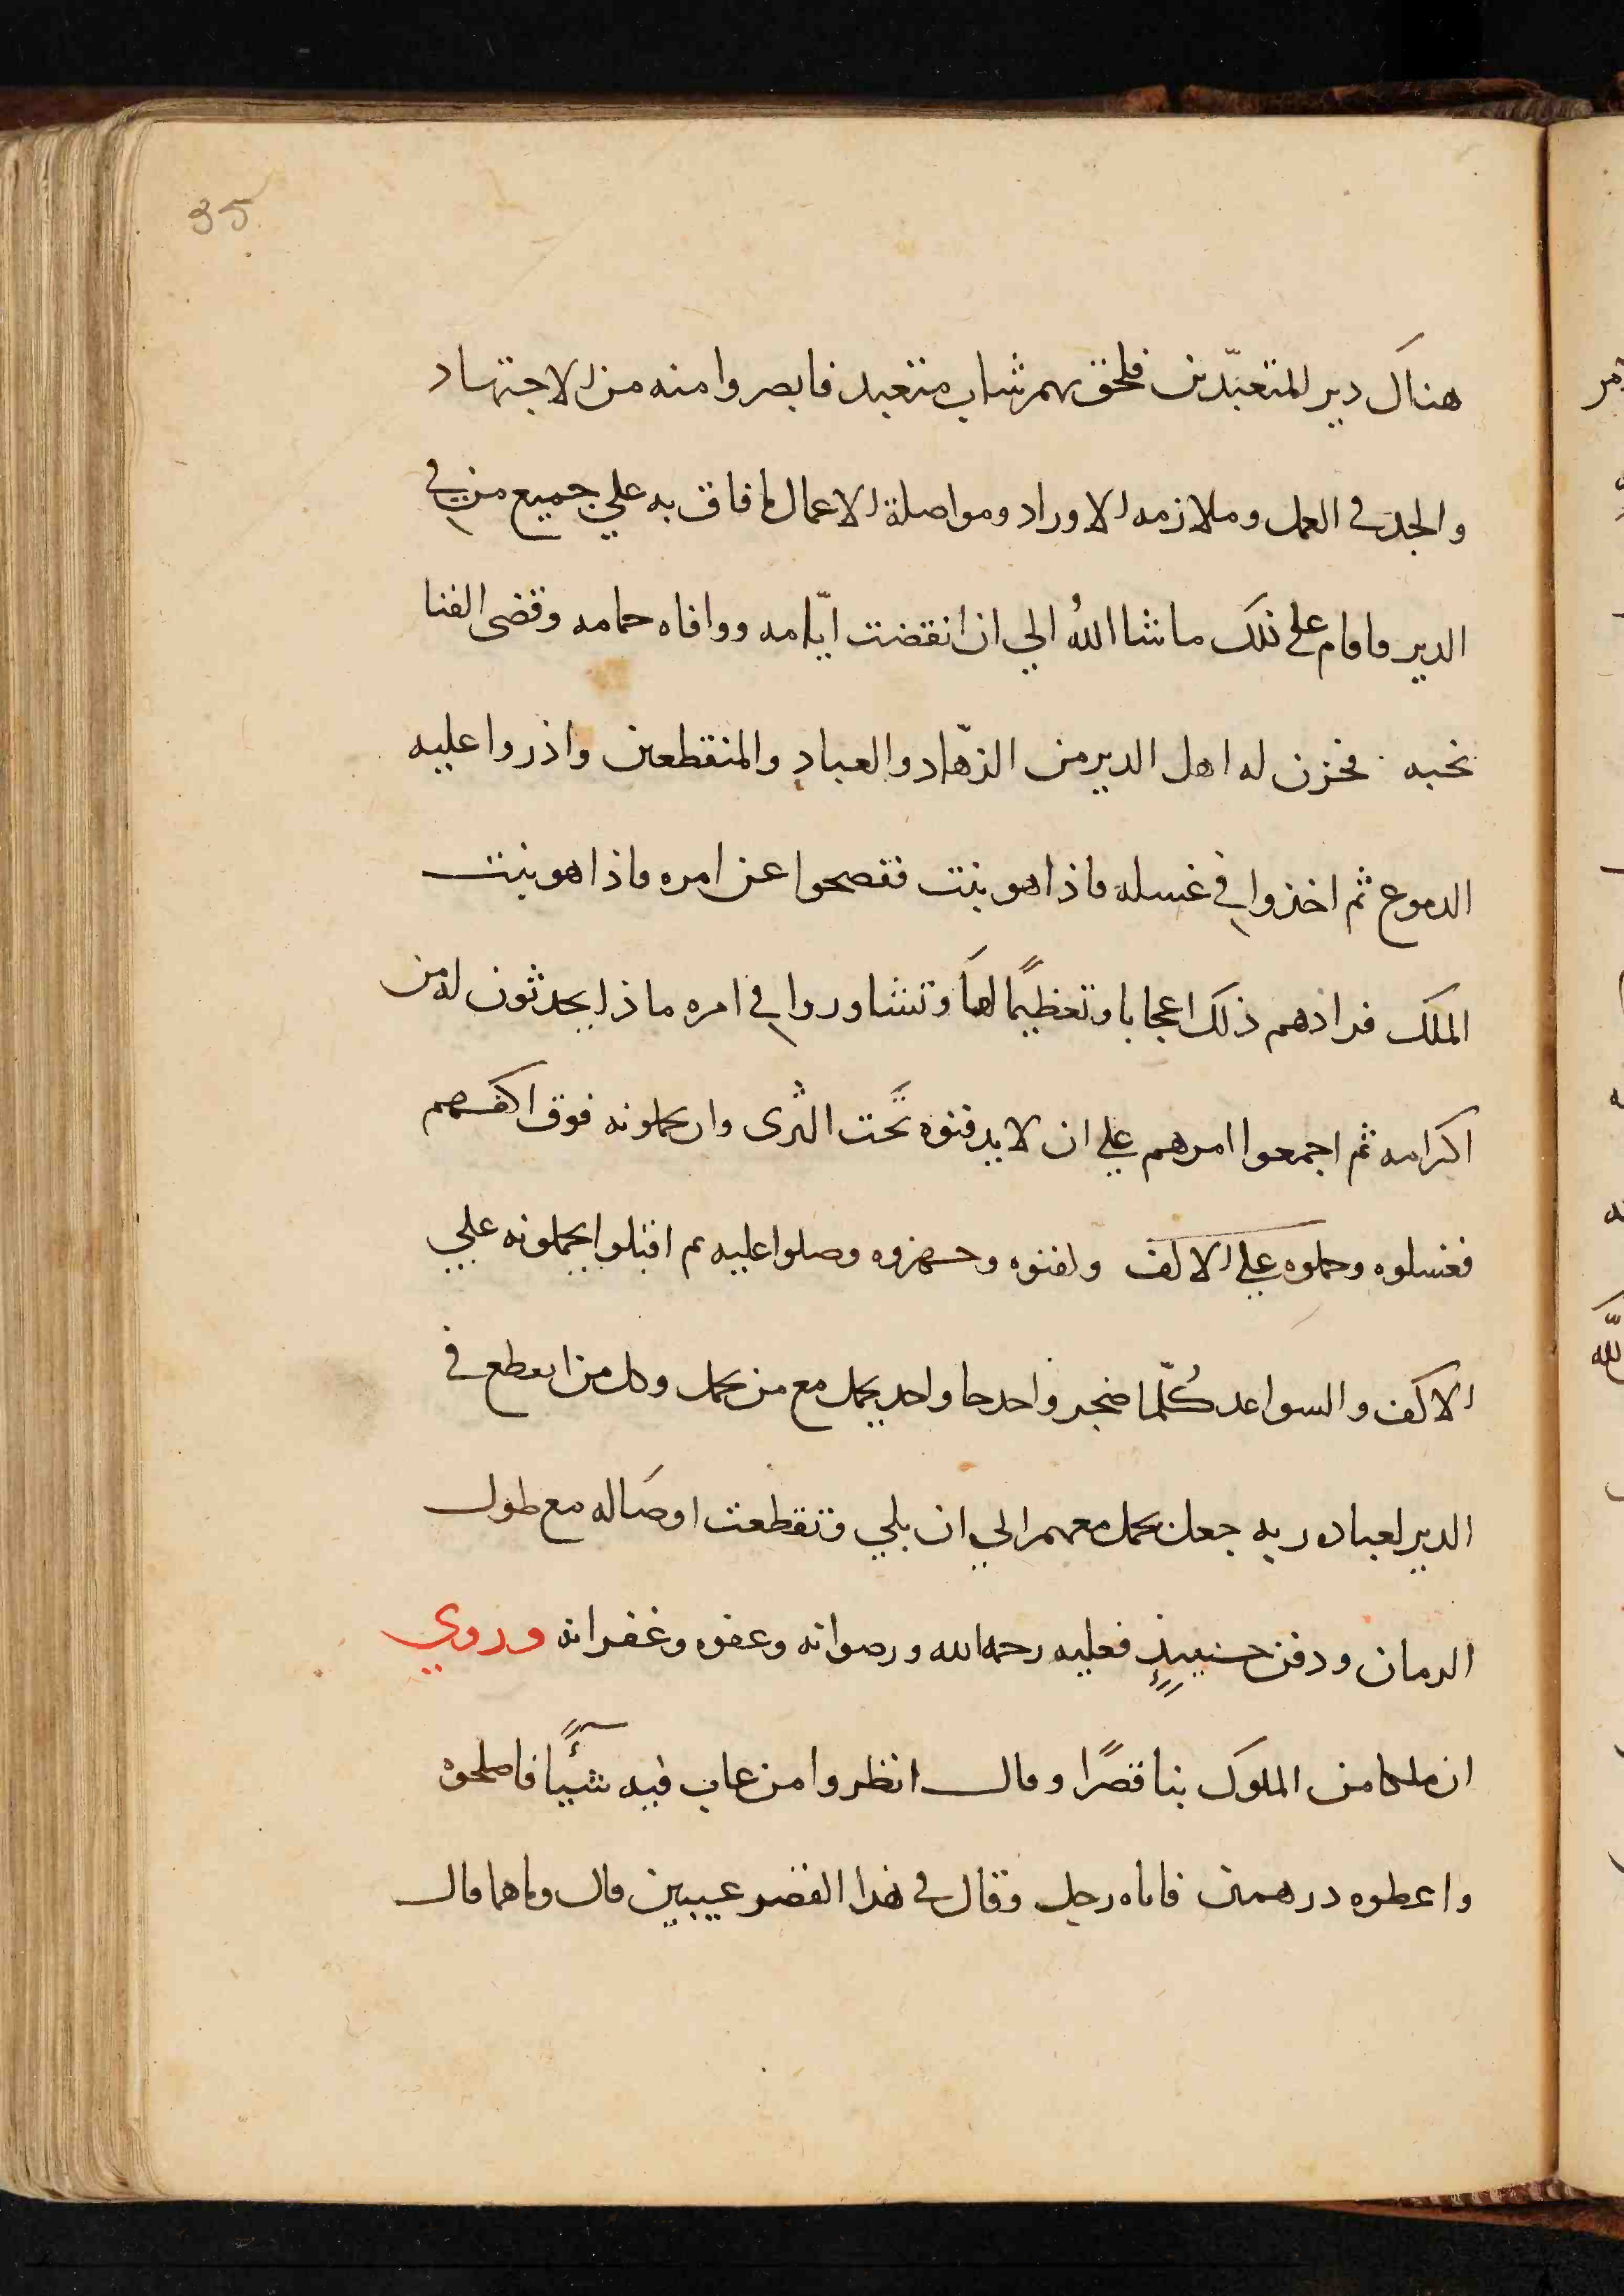 35
هناك دير للمتعبّدين فلحق بهم شاب متعبد فابصروا منه من الاجتهاد
والجد في العمل وملازمه الاوراد ومواصلة الاعمال لما فاق به علي جميع من في
الدير فاقام علي ذلك ما شا اللهُ الي ان انقضت ايّامه ووافاه حمامه وقضى الفنا
نحبه فحزن له اهل الدير من الزهّاد والعباد والمنقطعين واذروا عليه
الدموع ثم اخذوا في غسله فاذا هو بنت فتصحوا عن امره فاذا هو بنت
الملك فزادهم ذلك اعجابا وتعظيمًا لها وتشاوروا في امره ماذا يحدثون له من
اكرامه ثم اجمعوا امرهم علي ان لا يدفنوه تحت الثرى وان يحملونه فوق اكفهم
فغسلوه وحملوه علي الاكف وكفنوه وجهزوه وصلوا عليه ثم اقبلوا يحملونه علي
الاكف والسواعد كُلّما ضجر واحد جا واحد يحمل مع من يحمل وكل من انقطع في
الدير لعباده ربه جعل يحمل معهم الي ان بلي وتقطعت اوصاله مع طول
الزمان ودفن حينيىذٍ فعليه رحمه الله ورضوانه وعفوه وغفرانه وروي
ان ملكا من الملوك بنا قصرًا وقال انظروا من عاب فيه شيئًا فاصلحوه
واعطوه درهمين فاتاه رجل وقال في هذا القصر عيبين قال وما هما قال